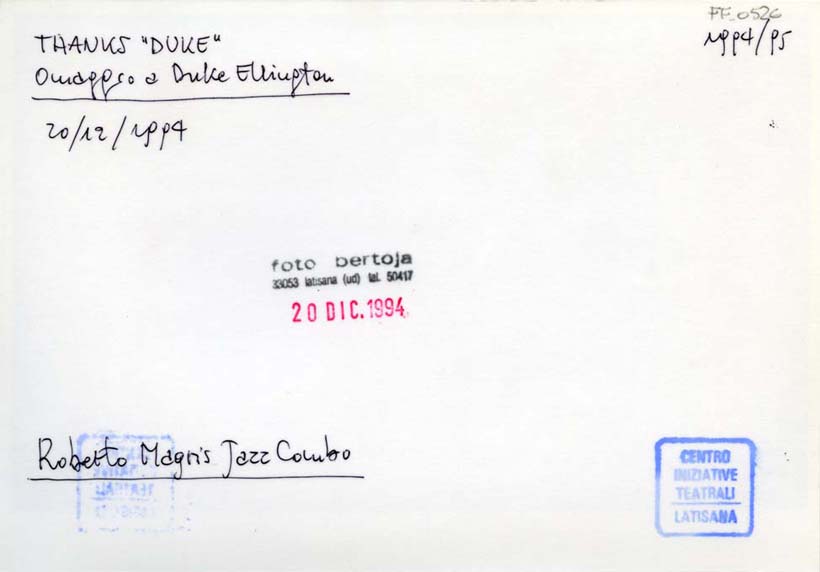 FF_0526
1994/95
THANKS "DUKE"
Omaggio a Duke Ellington
20/12/1994
foto bertoja
33053 latisana (ud) tel. 50417
20 DIC. 1994
Roberto Magris Jazz Combo
CENTRO
INIZIATIVE
TEATRALI
LATISANA